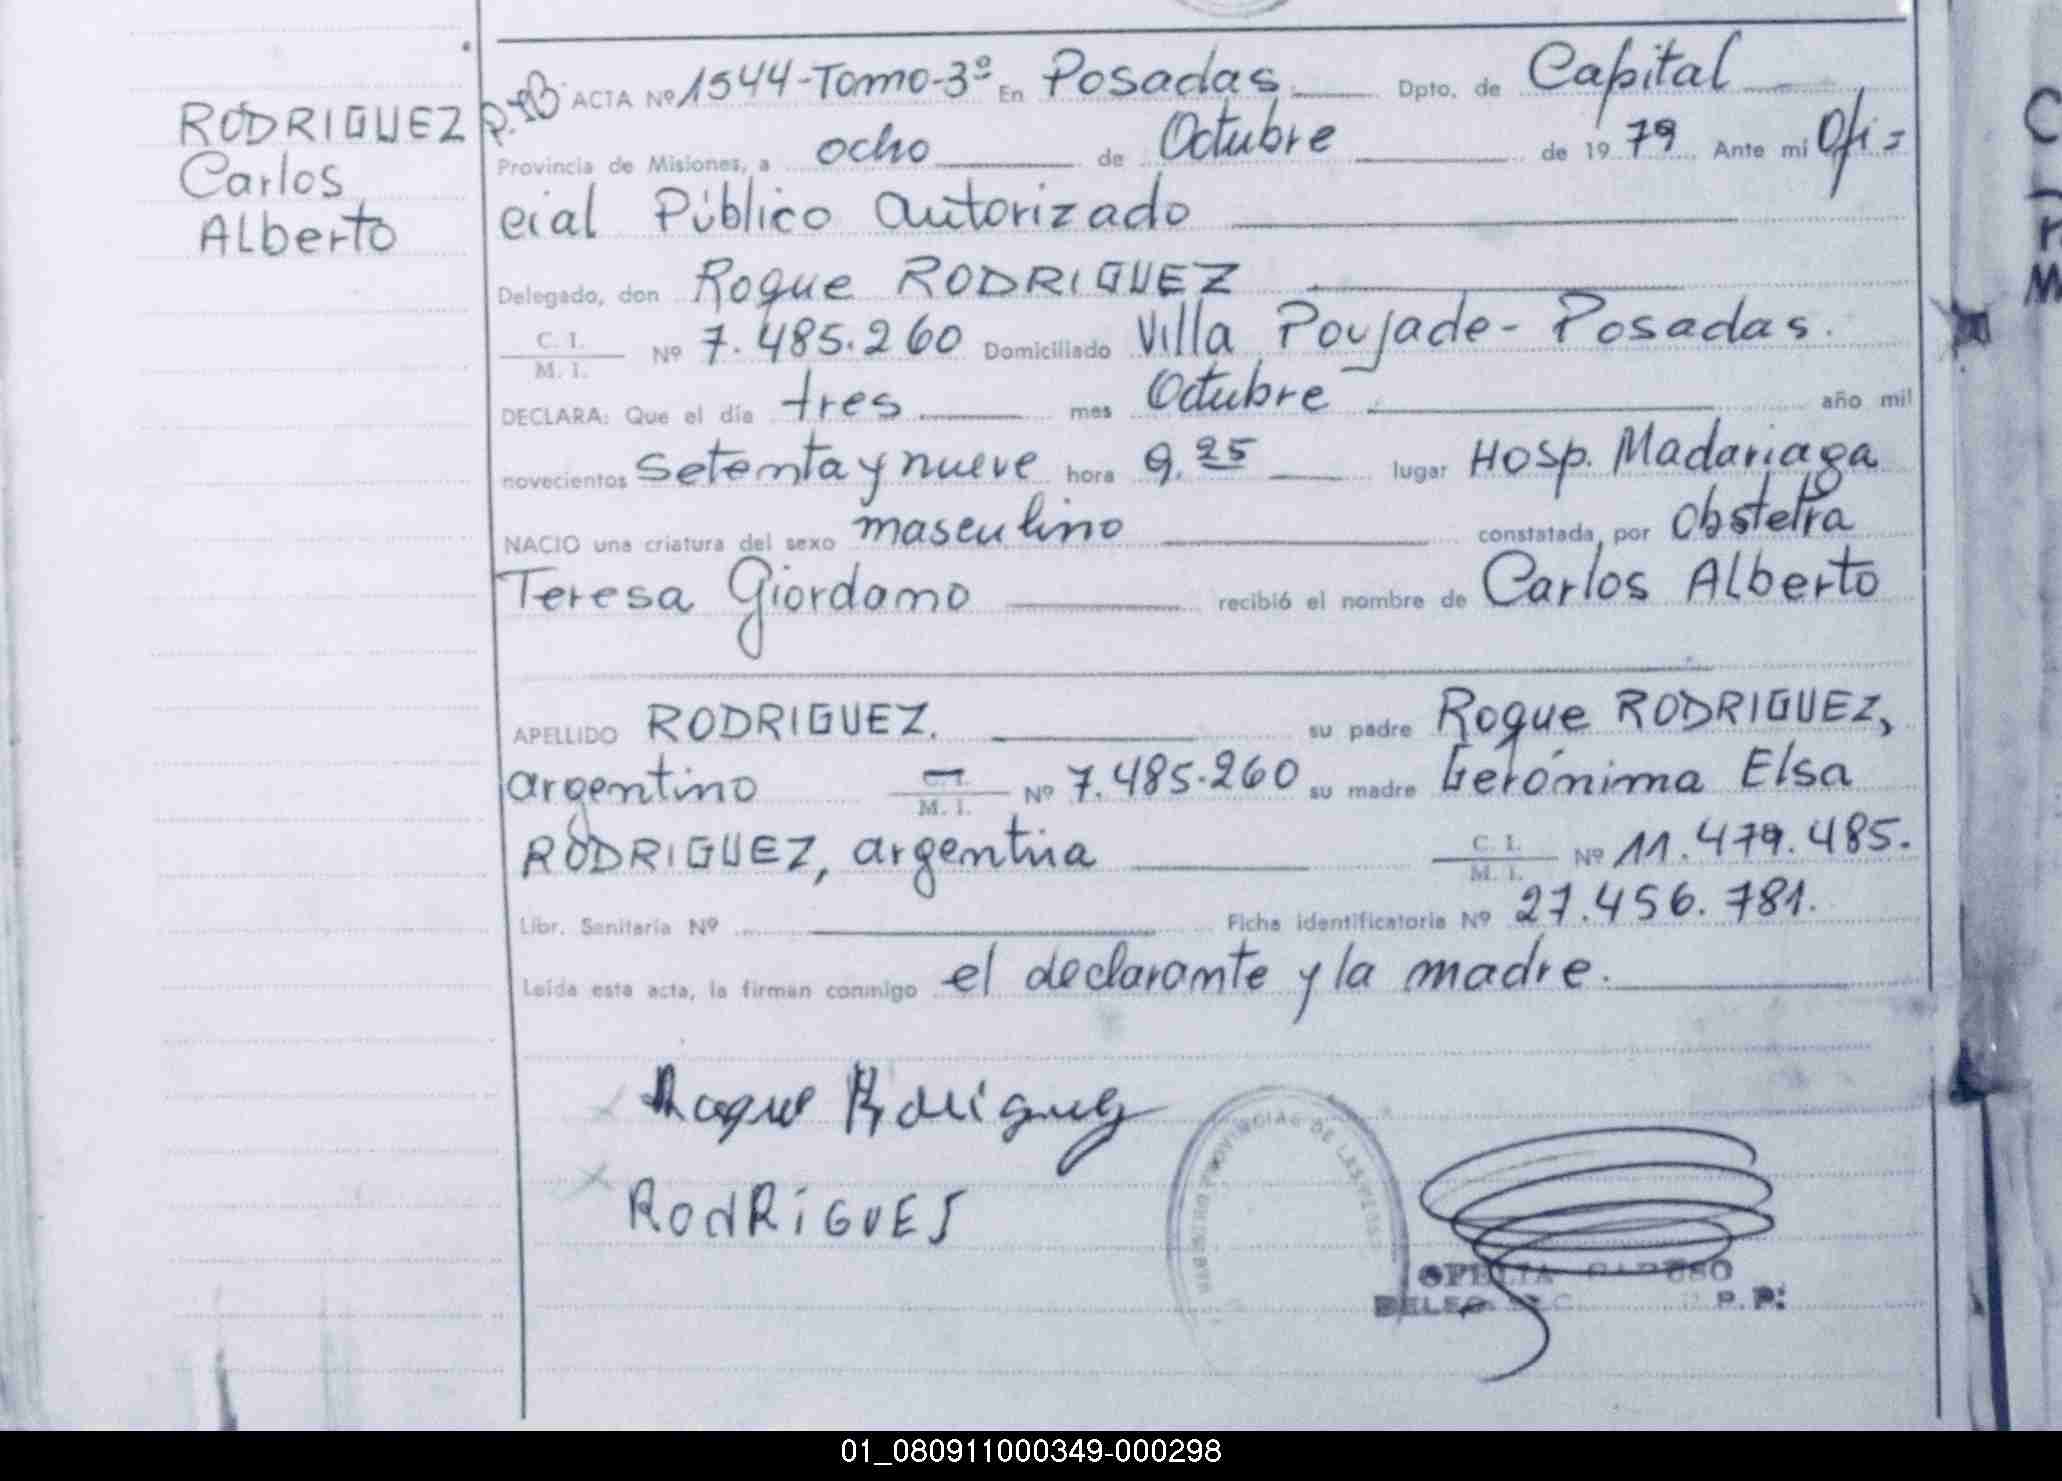 RODRIGUEZ
Carlos
Alberto
ACTA Nº 1544-Tomo-3º En Posadas Dpto. de Capital
Provincia de Misiones, a ocho de Octubre de 1979 Ante mi Ofi=
cial Público autorizado
Delegado, don Roque RODRIGUEZ
C. I.
M. I. Nº 7.485.260 Domiciliado Villa Poujade - Posadas.
DECLARA: Que el día tres mes Octubre año mil
novecientos Setenta y nueve hora 9.25 lugar Hosp. Madariaga
NACIO una criatura del sexo masculino constatada por Obstetra
Teresa Giordano recibió el nombre de Carlos Alberto
APELLIDO RODRIGUEZ. su padre Roque RODRIGUEZ,
argentino C. I. M. I. Nº 7.485.260 su madre Gerónima Elsa
RODRIGUEZ, argentina C. I. M. I. Nº 11.479.485.
Libr. Sanitaria Nº Ficha identificatoria Nº 27.456.781.
Leída esta acta, la firman conmigo el declarante y la madre.
Roque Rodriguez
RodRiGUES
PROVINCIAS DE LAS
OFELIA CARUSO
01_080911000349-000298